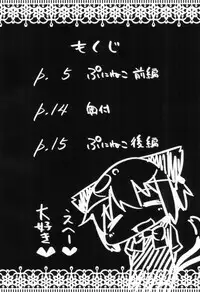 もくじ
p.5 ぷにねこ 前編
p.14 奥付
p.15 ぷにねこ 後編
スヘー♥
大好き♥